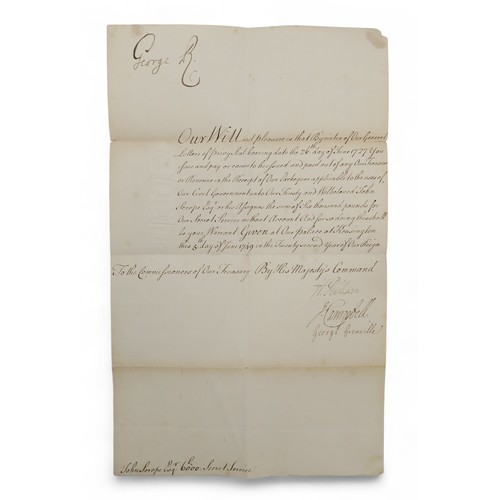 George R.
Our Will and pleasure is that By virtue of Our General
Letters of Privy Seal bearing date the 26th day of June 1727 You
Issue and pay or cause to be Issued and paid out of any Our Treasure
or Revenue in the Receipt of Our Exchequer applicable to the uses of
Our Civil Government unto Our Trusty and Wellbeloved John
Scrope Esqr. or his Assigns the sum of Six thousand pounds for
Our Secret Service without Account And for so doing this shall
be your Warrant Given at Our Palace at Kensington
this 5th day of June 1749 in the Twenty second Year of Our Reign
To the Commissioners of Our Treasury By His Majesty's Command
H Pelham
J Campbell
George Grenville
John Scrope Esqr. 6000. Secret Service